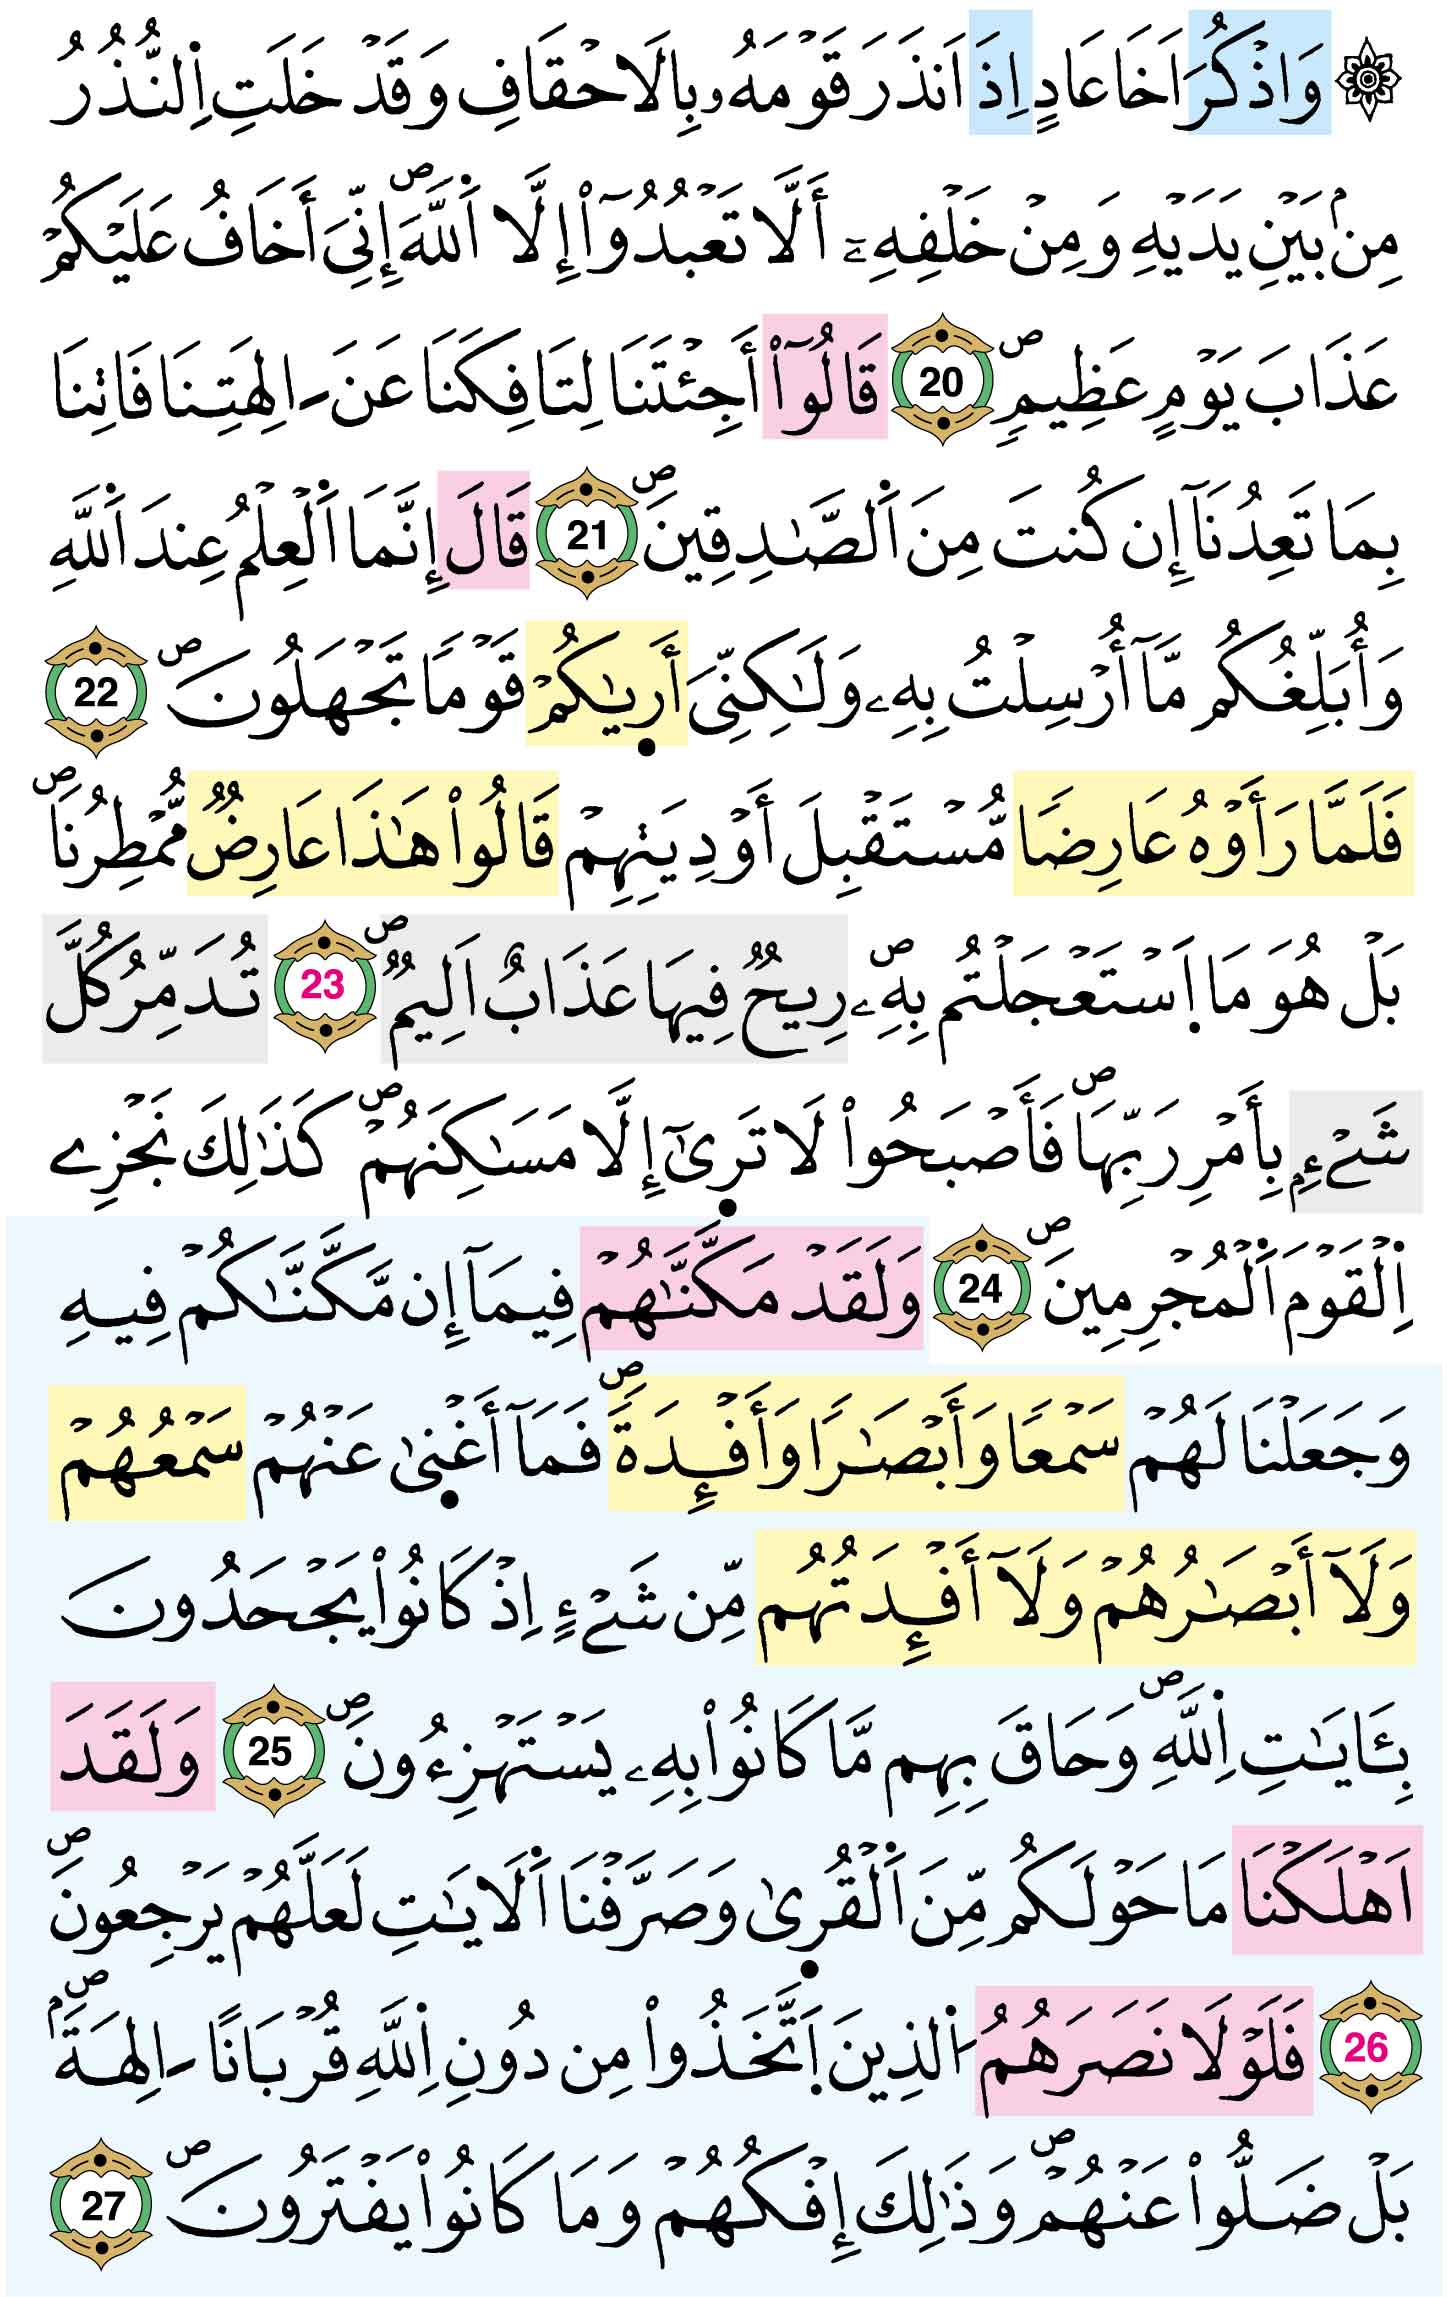 ۞ وَاذْكُرَ اَخَا عَادٍ اِذَ اَنذَرَ قَوْمَهُۥ بِالَاحْقَافِ وَقَدْ خَلَتِ اِ۬لنُّذُرُ
مِنۢ بَيْنِ يَدَيْهِ وَمِنْ خَلْفِهِۦٓ أَلَّا تَعْبُدُوٓاْ إِلَّا اَ۬للَّهَۖ إِنِّيَ أَخَافُ عَلَيْكُمْ
عَذَابَ يَوْمٍ عَظِيمٖۖ 20 قَالُوٓاْ أَجِئْتَنَا لِتَافِكَنَا عَنَ اٰلِهَتِنَا فَاتِنَا
بِمَا تَعِدُنَآ إِن كُنتَ مِنَ اَ۬لصَّٰدِقِينَۖ 21 قَالَ إِنَّمَا اَ۬لْعِلْمُ عِندَ اَ۬للَّهِ
وَأُبَلِّغُكُم مَّآ أُرْسِلْتُ بِهِۦ وَلَٰكِنِّيَ أَر۪يٰكُمْ قَوْماٗ تَجْهَلُونَۖ 22
فَلَمَّا رَأَوْهُ عَارِضاٗ مُّسْتَقْبِلَ أَوْدِيَتِهِمْ قَالُواْ هَٰذَا عَارِضٞ مُّمْطِرُنَاۖ
بَلْ هُوَ مَا اَ۪سْتَعْجَلْتُم بِهِۦۖ رِيحٞ فِيهَا عَذَابٌ اَلِيمٞۖ 23 تُدَمِّرُ كُلَّ
شَےْءِۢ بِأَمْرِ رَبِّهَاۖ فَأَصْبَحُواْ لَا تَر۪ىٰٓ إِلَّا مَسَٰكِنَهُمْۖ كَذَٰلِكَ نَجْزِے
اِ۬لْقَوْمَ اَ۬لْمُجْرِمِينَۖ 24 وَلَقَدْ مَكَّنَّٰهُمْ فِيمَآ إِن مَّكَّنَّٰكُمْ فِيهِ
وَجَعَلْنَا لَهُمْ سَمْعاٗ وَأَبْصَٰراٗ وَأَفْـِٕدَةٗۖ فَمَآ أَغْن۪ىٰ عَنْهُمْ سَمْعُهُمْ
وَلَآ أَبْصَٰرُهُمْ وَلَآ أَفْـِٕدَتُهُم مِّن شَےْءٍ اِذْ كَانُواْ يَجْحَدُونَ
بِـَٔايَٰتِ اِ۬للَّهِۖ وَحَاقَ بِهِم مَّا كَانُواْ بِهِۦ يَسْتَهْزِءُونَۖ 25 وَلَقَدَ
اَهْلَكْنَا مَا حَوْلَكُم مِّنَ اَ۬لْقُر۪ىٰ وَصَرَّفْنَا اَ۬لَايَٰتِ لَعَلَّهُمْ يَرْجِعُونَۖ
26 فَلَوْلَا نَصَرَهُمُ اُ۬لذِينَ اَ۪تَّخَذُواْ مِن دُونِ اِ۬للَّهِ قُرْبَاناً اٰلِهَةَۢۖ
بَلْ ضَلُّواْ عَنْهُمْۖ وَذَٰلِكَ إِفْكُهُمْ وَمَا كَانُواْ يَفْتَرُونَۖ 27